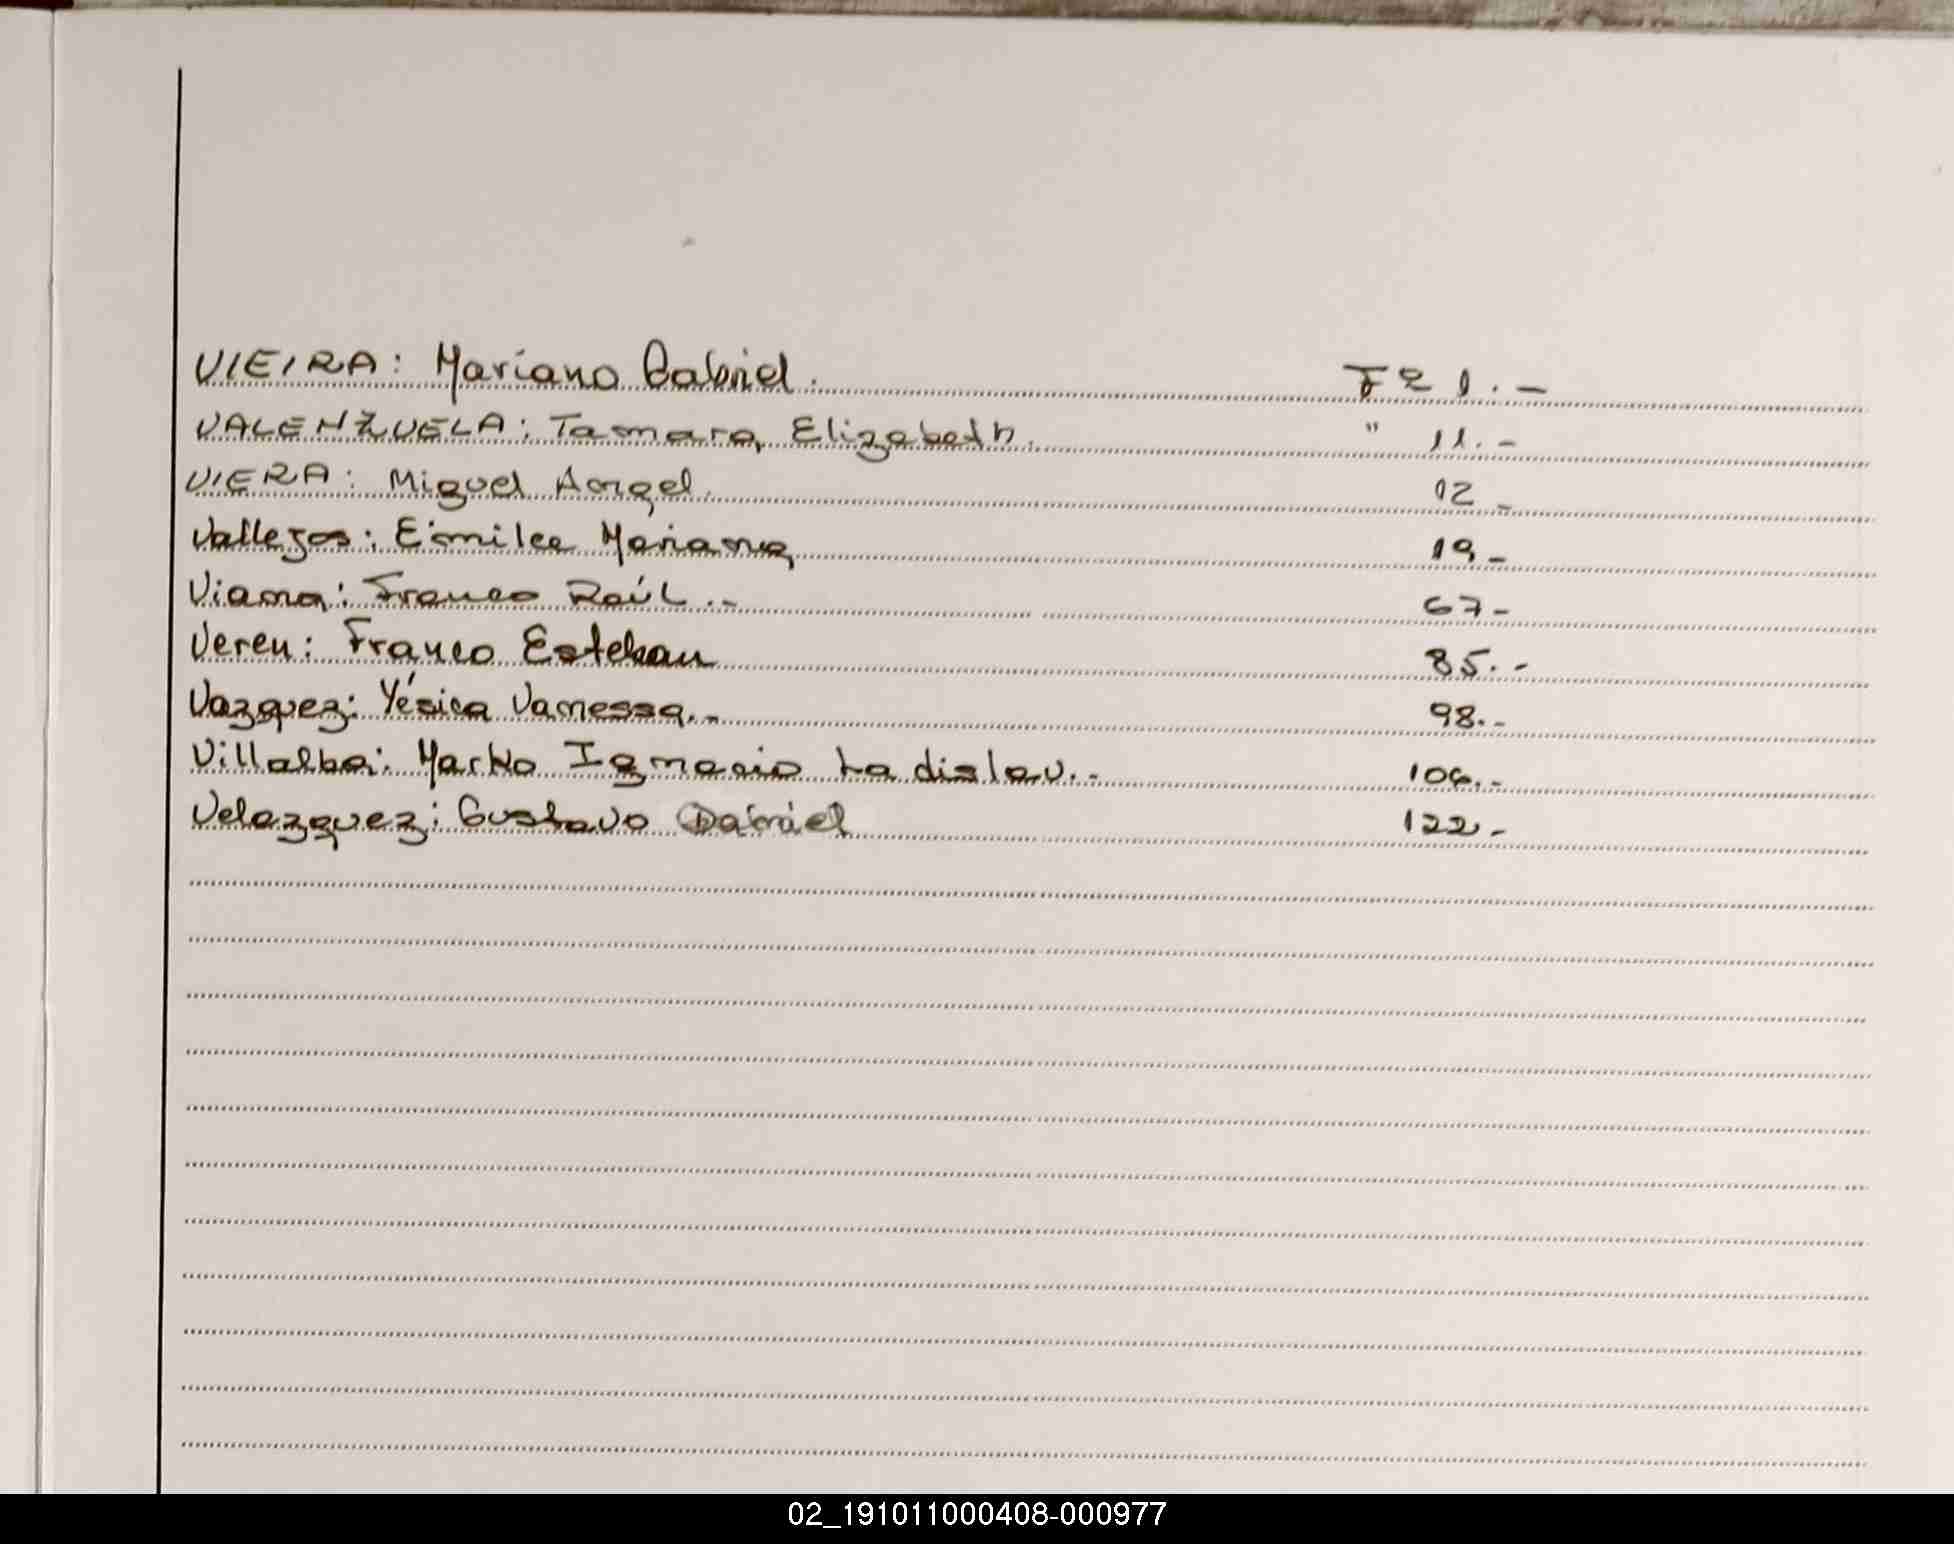 VIEIRA: Mariano Gabriel. Fº 1.-
VALENZUELA: Tamara Elizabeth. " 11.-
VIERA: Miguel Angel. 12-
Vallejos: Emilce Mariana 19-
Viana: Franco Raúl.- 67-
Vereu: Franco Esteban 85.-
Vazquez: Yésica Vanessa.- 98.-
Villalba: Marko Ignacio Ladislav.-
Velazquez: Gustavo Daniel 122-
02_191011000408-000977